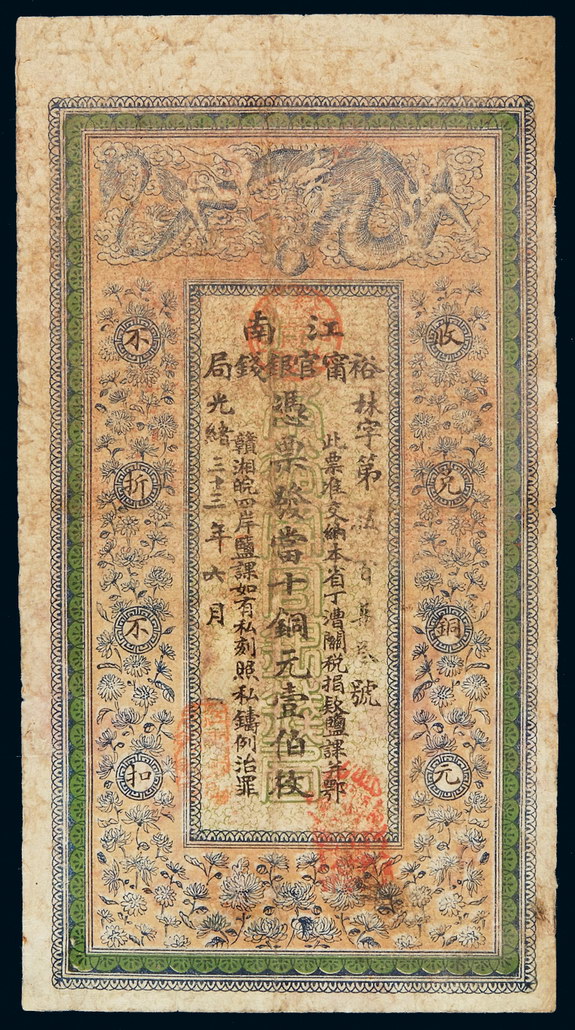 江南
裕甯官銀錢局
收兌銅元
林字第伍百號
此票准交納本省丁漕關税捐釐鹽課并鄂
憑票發當十銅元壹佰枚
贛湘皖四岸鹽課如有私刻照私鑄例治罪
光緒三十三年六月
不折不扣